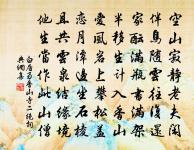 空山寂靜老夫閑
伴鳥隨雲往復還
家醞滿瓶書滿架
半移生計入香山
愛風巖上攀松蓋
戀月潭邊坐石稜
且共雲泉結緣境
他生當作此山僧
白居易香山寺二絕